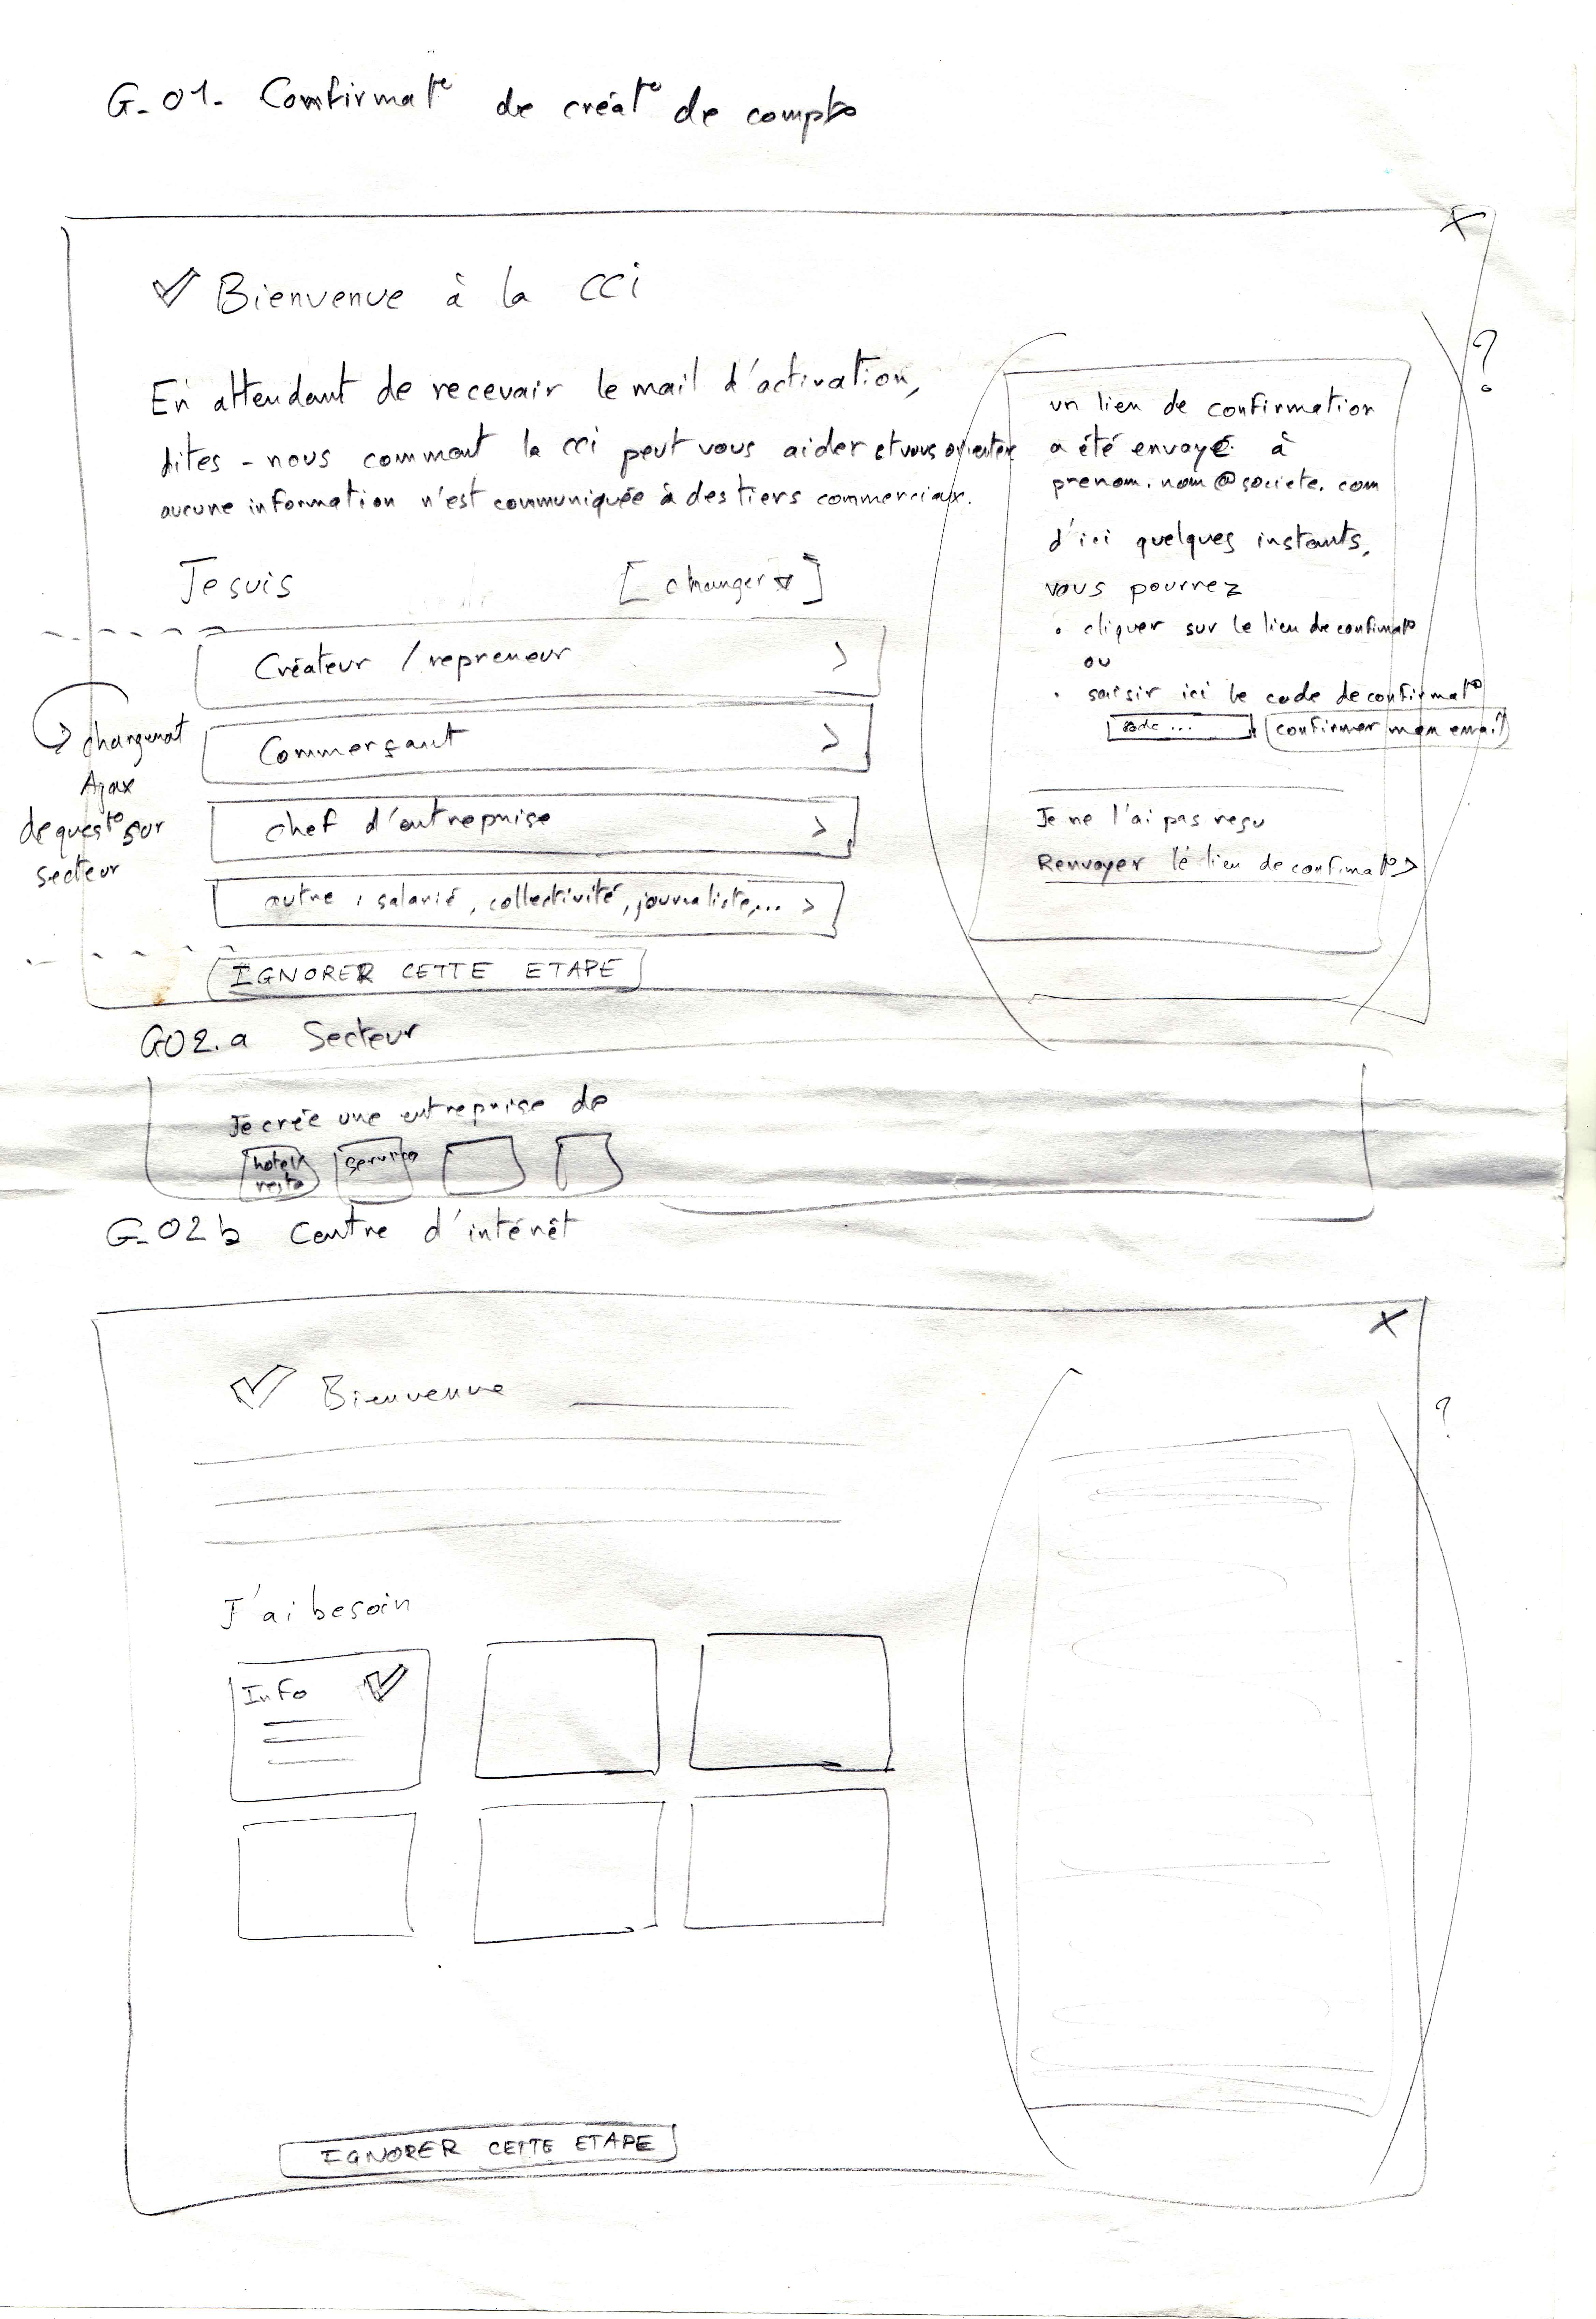 G-01- Confirmat° de créat° de compte
Bienvenue à la CCi
En attendant de recevoir le mail d'activation,
dites-nous comment la cci peut vous aider et vous orienter
aucune information n'est communiquée à des tiers commerciaux.
Je suis [changer]
Créateur / repreneur >
Commerçant >
chef d'entreprise >
autre : salarié, collectivité, journaliste,... >
IGNORER CETTE ETAPE
changemat
Ajax
de quest° sur
secteur
?
un lien de confirmation
a été envoyé à
prenom.nom@societe.com
d'ici quelques instants,
vous pourrez
• cliquer sur le lien de confirmat°
ou
• saisir ici le code de confirmat°
code ... confirmer mon email
Je ne l'ai pas reçu
Renvoyer le lien de confirmat° >
G02.a Secteur
Je crée une entreprise de
hotel service
resto
G-02b Centre d'intérêt
Bienvenue
?
J'ai besoin
Info
IGNORER CETTE ETAPE